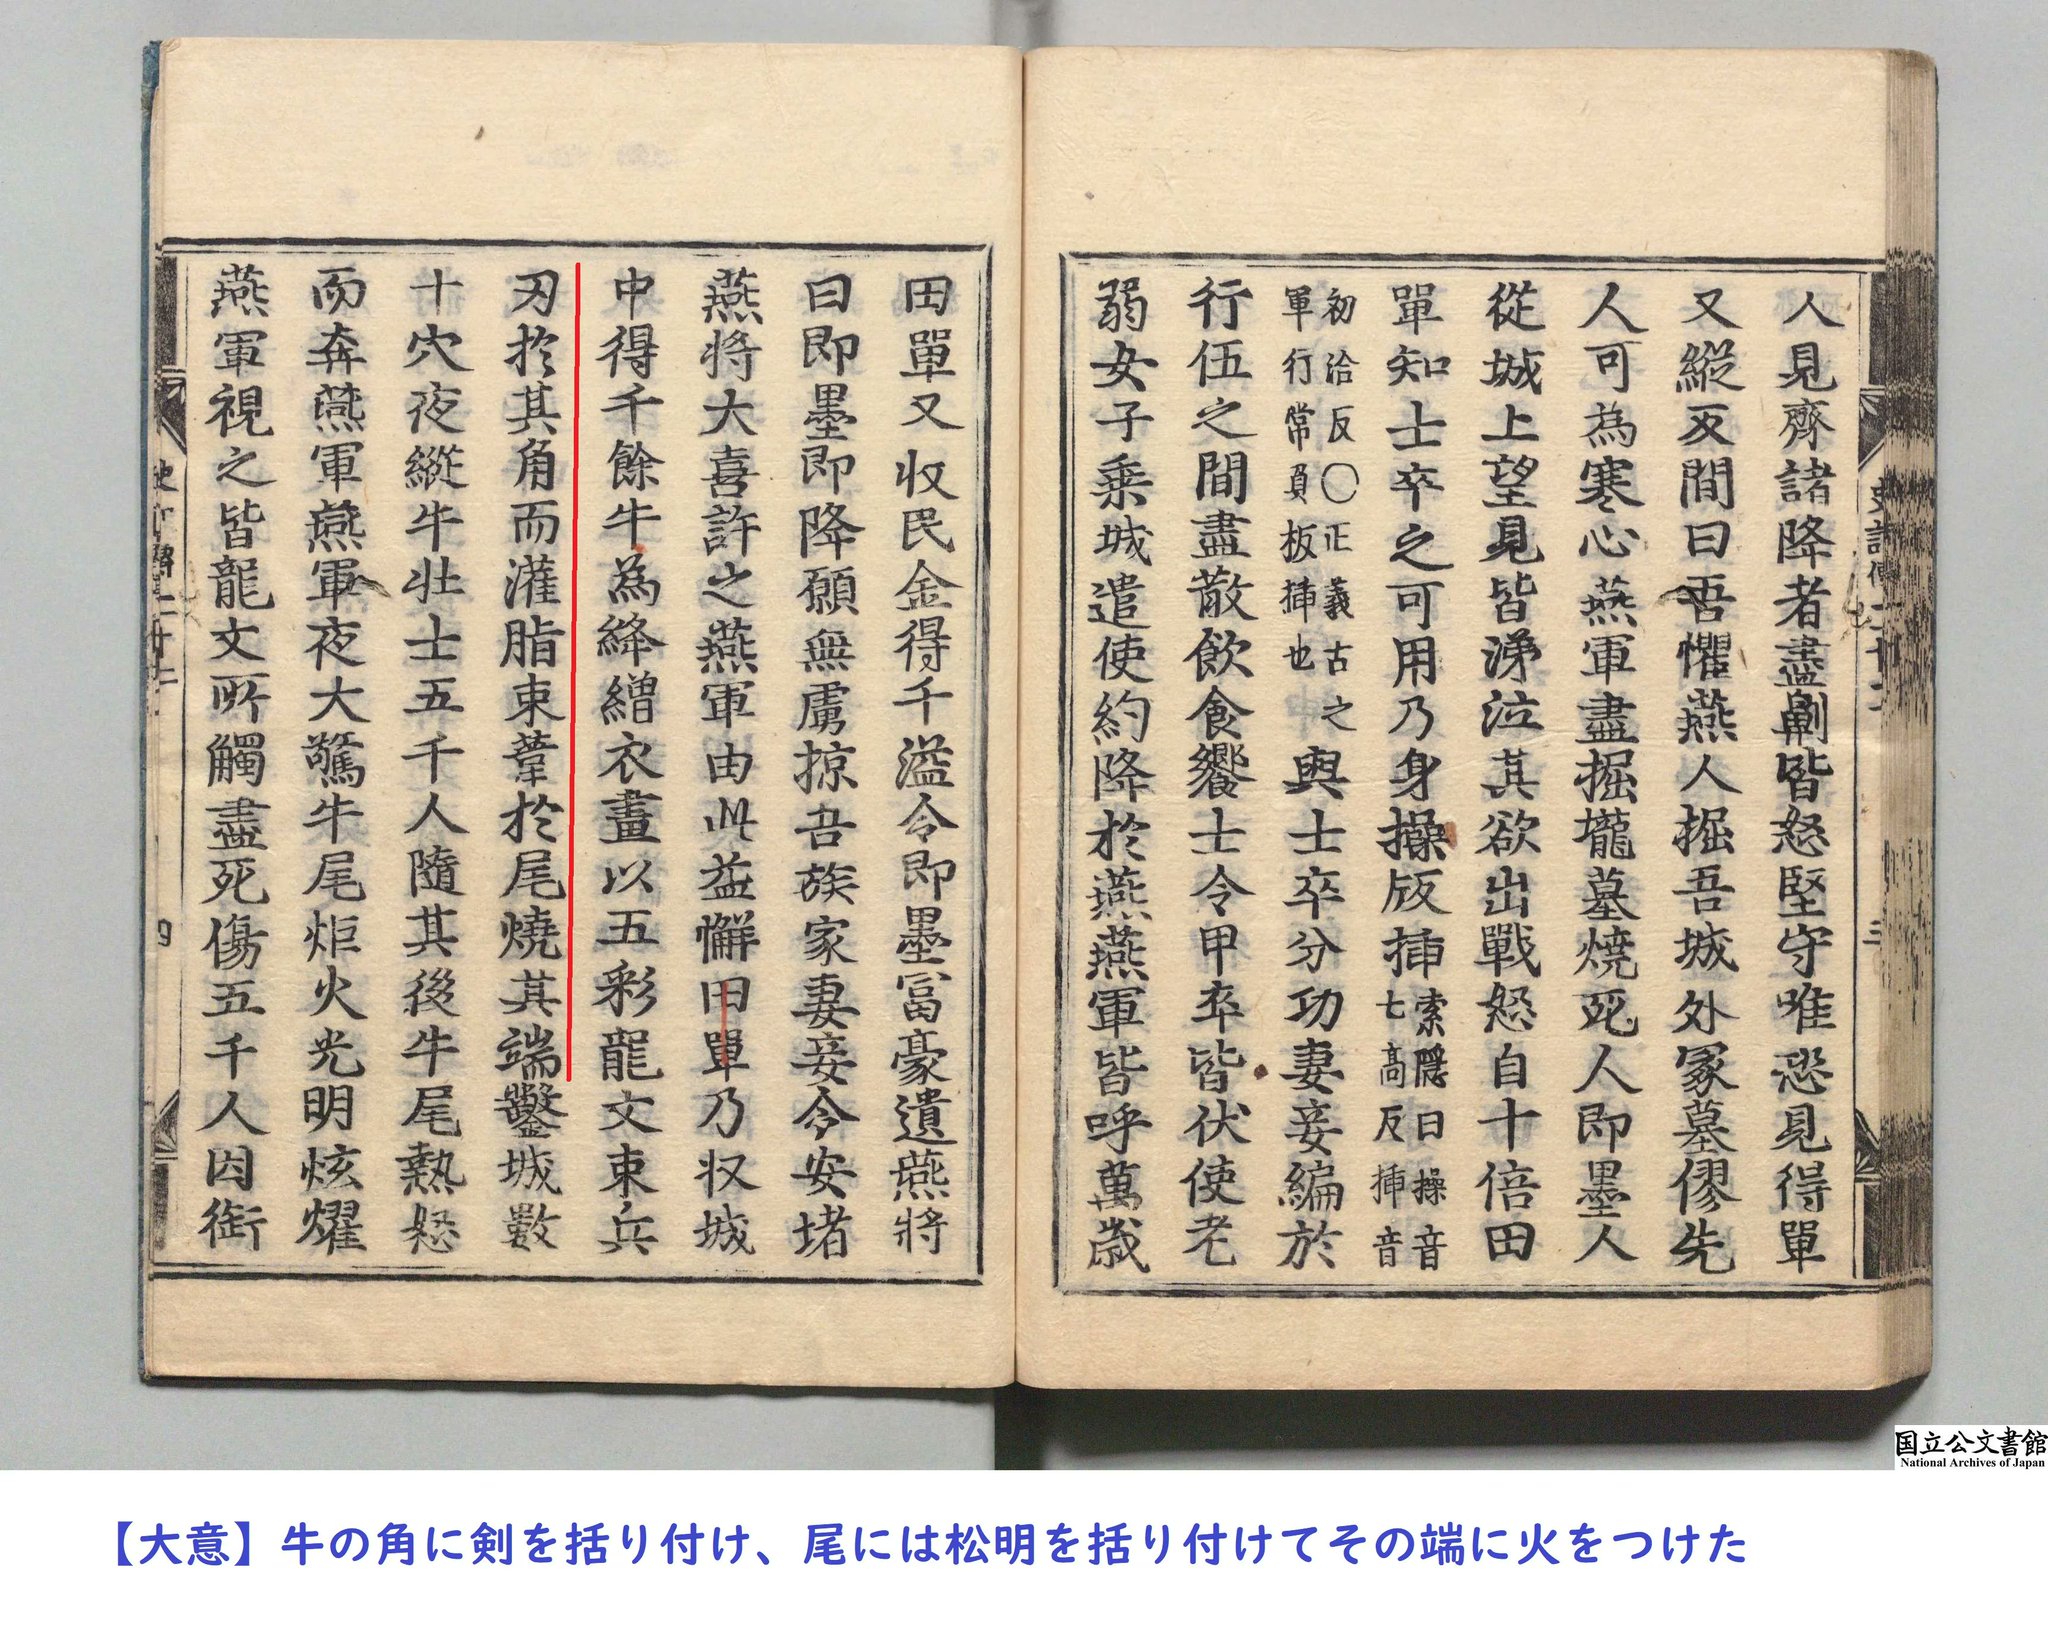 人見齊諸降者盡劓皆怒堅守唯恐見得單
又縱反間曰吾懼燕人掘吾城外冢墓僇先
人可為寒心燕軍盡掘壠墓燒死人即墨人
從城上望見皆涕泣其欲出戰怒自十倍田
單知士卒之可用乃身操版插
索隱曰操音
七高反插音
初洽反〇正義古之
軍行常負板插也
與士卒分功妻妾編於
行伍之間盡散飲食饗士令甲卒皆伏使老
弱女子乘城遣使約降於燕燕軍皆呼萬歳
田單又收民金得千溢令即墨富豪遺燕將
曰即墨即降願無虜掠吾族家妻妾令安堵
燕将大喜許之燕軍由此益懈田單乃収城
中得千餘牛為絳繒衣畫以五彩龍文束兵
刃於其角而灌脂束葦於尾燒其端鑿城數
十穴夜縱牛壮士五千人隨其後牛尾熱怒
而奔燕軍燕軍夜大驚牛尾炬火光明炫燿
燕軍視之皆龍文所觸盡死傷五千人因銜
四
国立公文書館
National Archives of Japan
【大意】牛の角に剣を括り付け、尾には松明を括り付けてその端に火をつけた